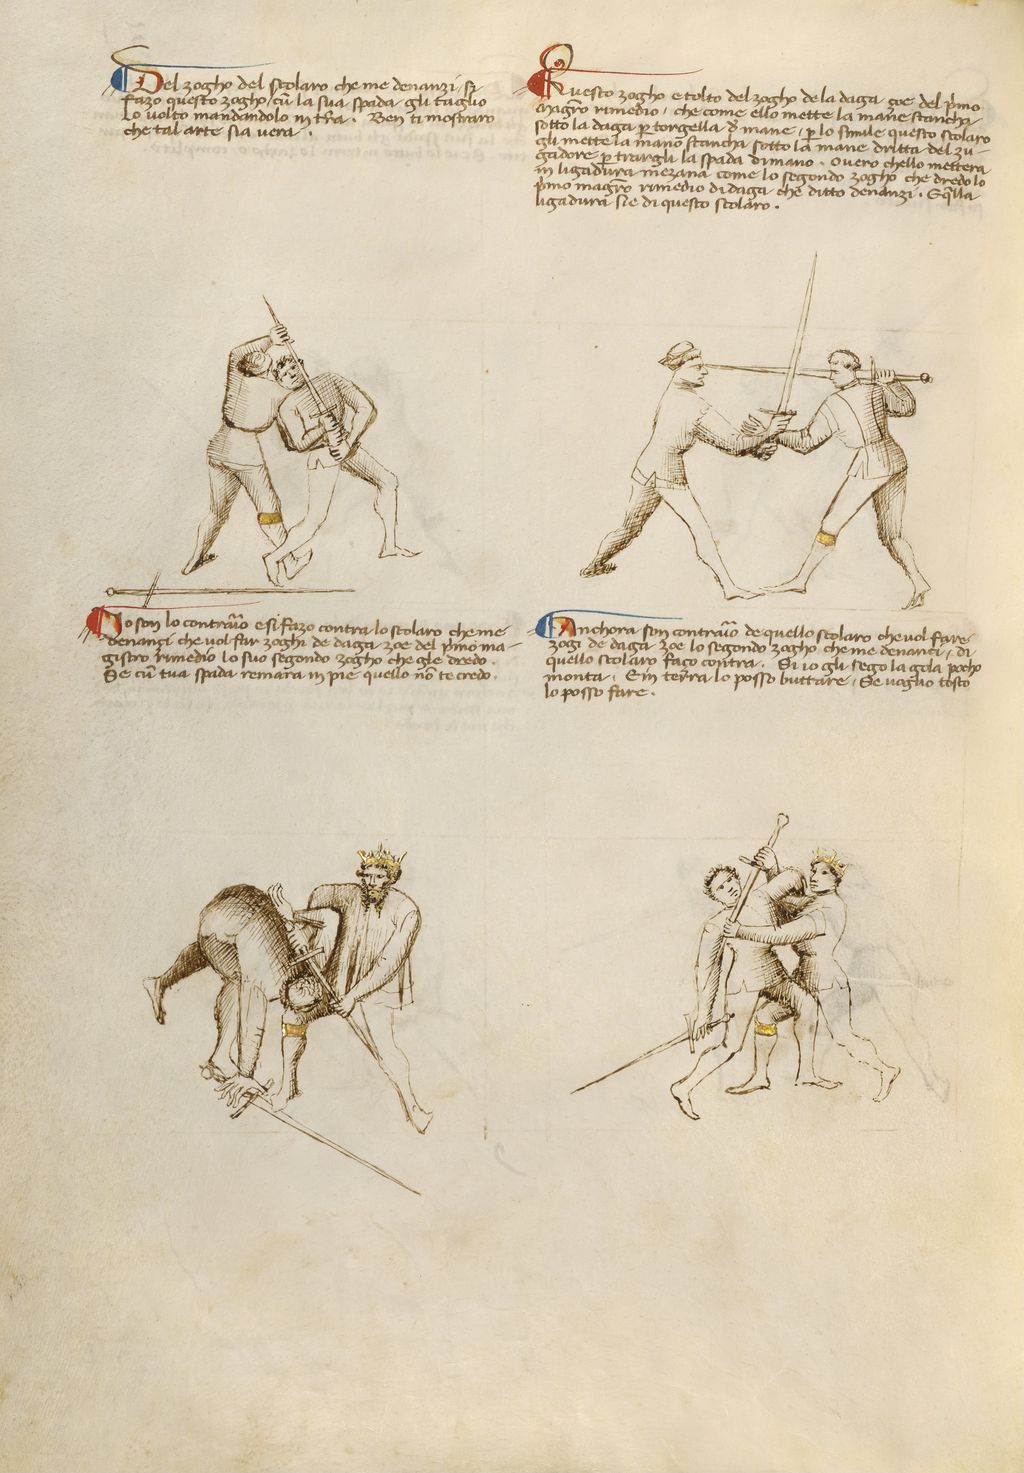 Del zogho del scolaro che me denanzi, si
fazo questo zogho, cū la sua spada gli taglio
lo volto mandandolo in tr̄a. Ben ti mostraro
che tal arte sia vera.
Questo zogho e tolto del zogho de la daga zoe del p̄mo
magr̄o rimedio, che come ello mette la mane stancha
sotto la daga p̱ torgella d̄ mane, p̱ lo simile questo scolaro
gli mette la mano stancha sotto la mane dritta del zu-
gadore p̱ trargli la spada di mano. Overo che llo mettera
in ligadura mezana come lo segondo zogho che dredo lo
p̄mo magr̄o rimedio di daga che ditto denanzi. E q̄lla
ligadura sie di questo scolaro.
Io son lo contr̄aio e si fazo contra lo scolaro che me
denanzi che vol far zoghi de daga zoe del p̄mo ma-
gistro rimedio lo suo segondo zogho che gle dredo.
Se cū tua spada remara in pie quello nō te credo.
Anchora son contr̄aio de quello scolaro che vol fare
zogi de daga zoe lo segondo zogho che me denanci, di
quello scolaro faço contra. Si io gli sego la gola pocho
monta. E in terra lo posso buttare, Se voglio tosto
lo posso fare.